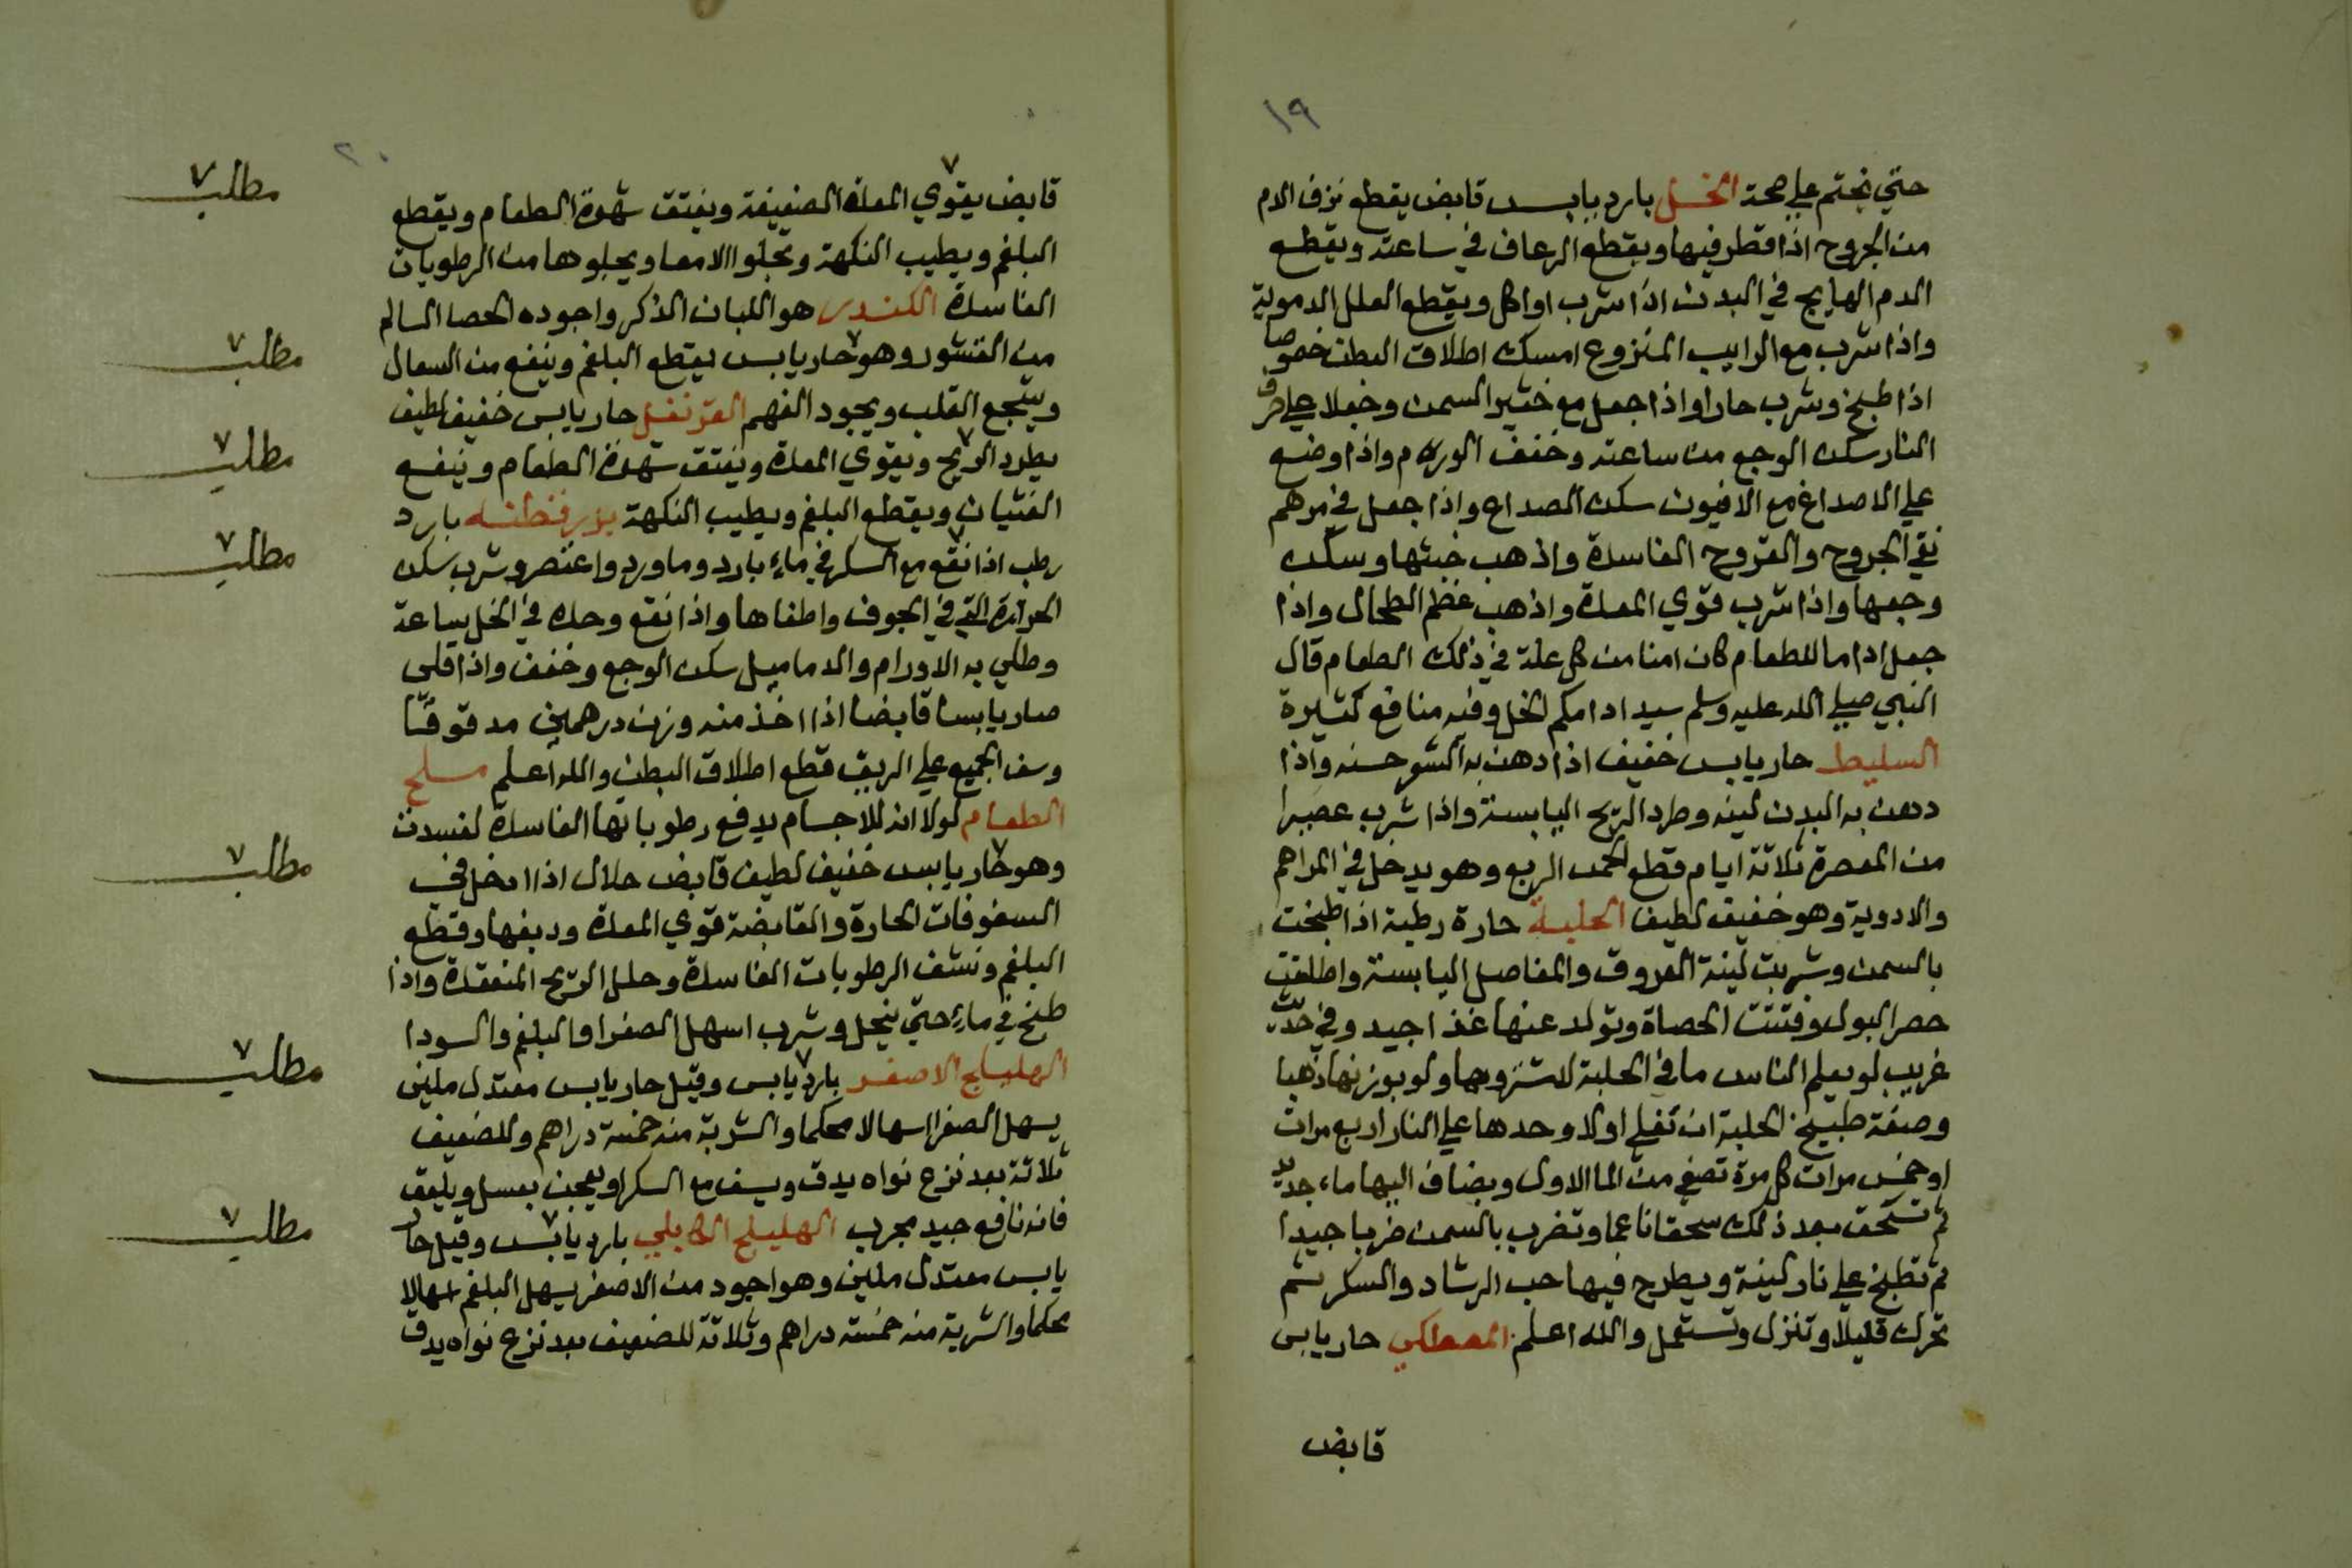 ١٩
حتي يختم علي صحة الخل بارد يابس قابض يقطع نزف الدم
من الجروح اذا قطر فيها ويقطع الرعاف في ساعته ويقطع
الدم الهايج في البدن اذا شرب او اكل ويقطع العلل الدموية
واذا شرب مع الرايب المنزوع امسك اطلاق البطن خصوصا
اذا طبخ وشرب حارا واذا جعل مع خثير السمن وجعلا علي حرف
النار سكن الوجع من ساعته وخفف الورم واذا وضع
علي الاصداغ مع الافيون سكن الصداع واذا جعل في مرهم
نقي الجروح والقروح الفاسدة واذهب خبثها وسكن
وجعها واذا شرب قوي المعدة واذهب عظم الطحال واذا
جعل اداما للطعام كان امنا من كل علة في ذلك الطعام قال
النبي صلي الله عليه وسلم سيد ادامكم الخل وفيه منافع كثيرة
السليط حار يابس خفيف اذا دهن به الشعر حسنه واذا
دهن به البدن لينه وطرد الريح اليابسة واذا شرب عصيرا
من المعصرة ثلاثة ايام قطع الحمى الربع وهو يدخل في المراهم
والادوية وهو خفيف لطيف الحلبة حارة رطبة اذا طبخت
بالسمن وشربت لينة العروق والمفاصل اليابسة واطلقت
حصر البول وفتتت الحصاة وتولد عنها غذا جيد وفي حديث
غريب لو يعلم الناس ما في الحلبة لاشتروها ولو بوزنها ذهبا
وصفة طبيخ الحلبة ان تغلي اولا وحدها علي النار اربع مرات
او خمس مرات كل مرة تصفي من الما الاول ويضاف اليها ماء جديد
ثم تسحق بعد ذلك سحقا ناعما وتضرب بالسمن ضربا جيدا
ثم تطبخ علي نار لينة ويطرح فيها حب الرشاد والسكر ثم
تحرك قليلا وتنزل وتستعمل والله اعلم المصطكي حار يابس
قابض
٢٠
قابض يقوي المعدة الضعيفة ويفتق شهوة الطعام ويقطع
البلغم ويطيب النكهة وتجلوا الامعا ويجلوها من الرطوبات
الفاسدة الكندر هو اللبان الذكر واجوده الحصا السالم
من القشور وهو حار يابس يقطع البلغم وينفع من السعال
ويشجع القلب ويجود الفهم القرنفل حار يابس خفيف لطيف
يطرد الريح ويقوي المعدة ويفتق شهوة الطعام وينفع
الغثيان ويقطع البلغم ويطيب النكهة بزر قطنه بارد
رطب اذا نقع مع السكر في ماء بارد وماورد واعتصر وشرب سكن
الحرارة التي في الجوف واطفاها واذا نقع وحده في الخل ساعة
وطلي به الاورام والدماميل سكن الوجع وخفف واذا قلى
صار يابسا قابضا اذا اخذ منه وزن درهمين مدقوقًا
وسف الجميع علي الريق قطع اطلاق البطن والله اعلم ملح
الطعام لولا انه للاجسام يدفع رطوباتها الفاسدة لفسدت
وهو حار يابس خفيف لطيف قابض حلال اذا ادخل في
السفوفات الحارة والقابضة قوي المعدة ودبغها وقطع
البلغم ونشف الرطوبات الفاسدة وحلل الريح المنعقدة واذا
طبخ في ماء حتي ينحل وشرب اسهل الصفرا والبلغم والسودا
الهليلج الاصفر بارد يابس وقيل حار يابس معتدل ملين
يسهل الصفرا اسهالا محكما والشربة منه خمسة دراهم وللضعيف
ثلاثة بعد نزع نواه يدق ويسف مع السكر او يعجن بعسل ويلعق
فانه نافع جيد مجرب الهليلج الكابلي بارد يابس وقيل حار
يابس معتدل ملين وهو اجود من الاصفر يسهل البلغم اسهالا
محكما والشربة منه خمسة دراهم وثلاثة للضعيف بعد نزع نواه يدق
مطلب ٧
مطلب ٧
مطلب ٧
مطلب ٧
مطلب ٧
مطلب ٧
مطلب ٧